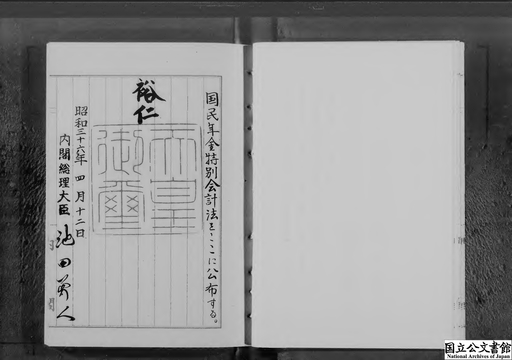 国民年金特別会計法をここに公布する。
裕仁
天皇御璽
昭和三十六年四月十二日
内閣総理大臣 池田勇人
国立公文書館
National Archives of Japan